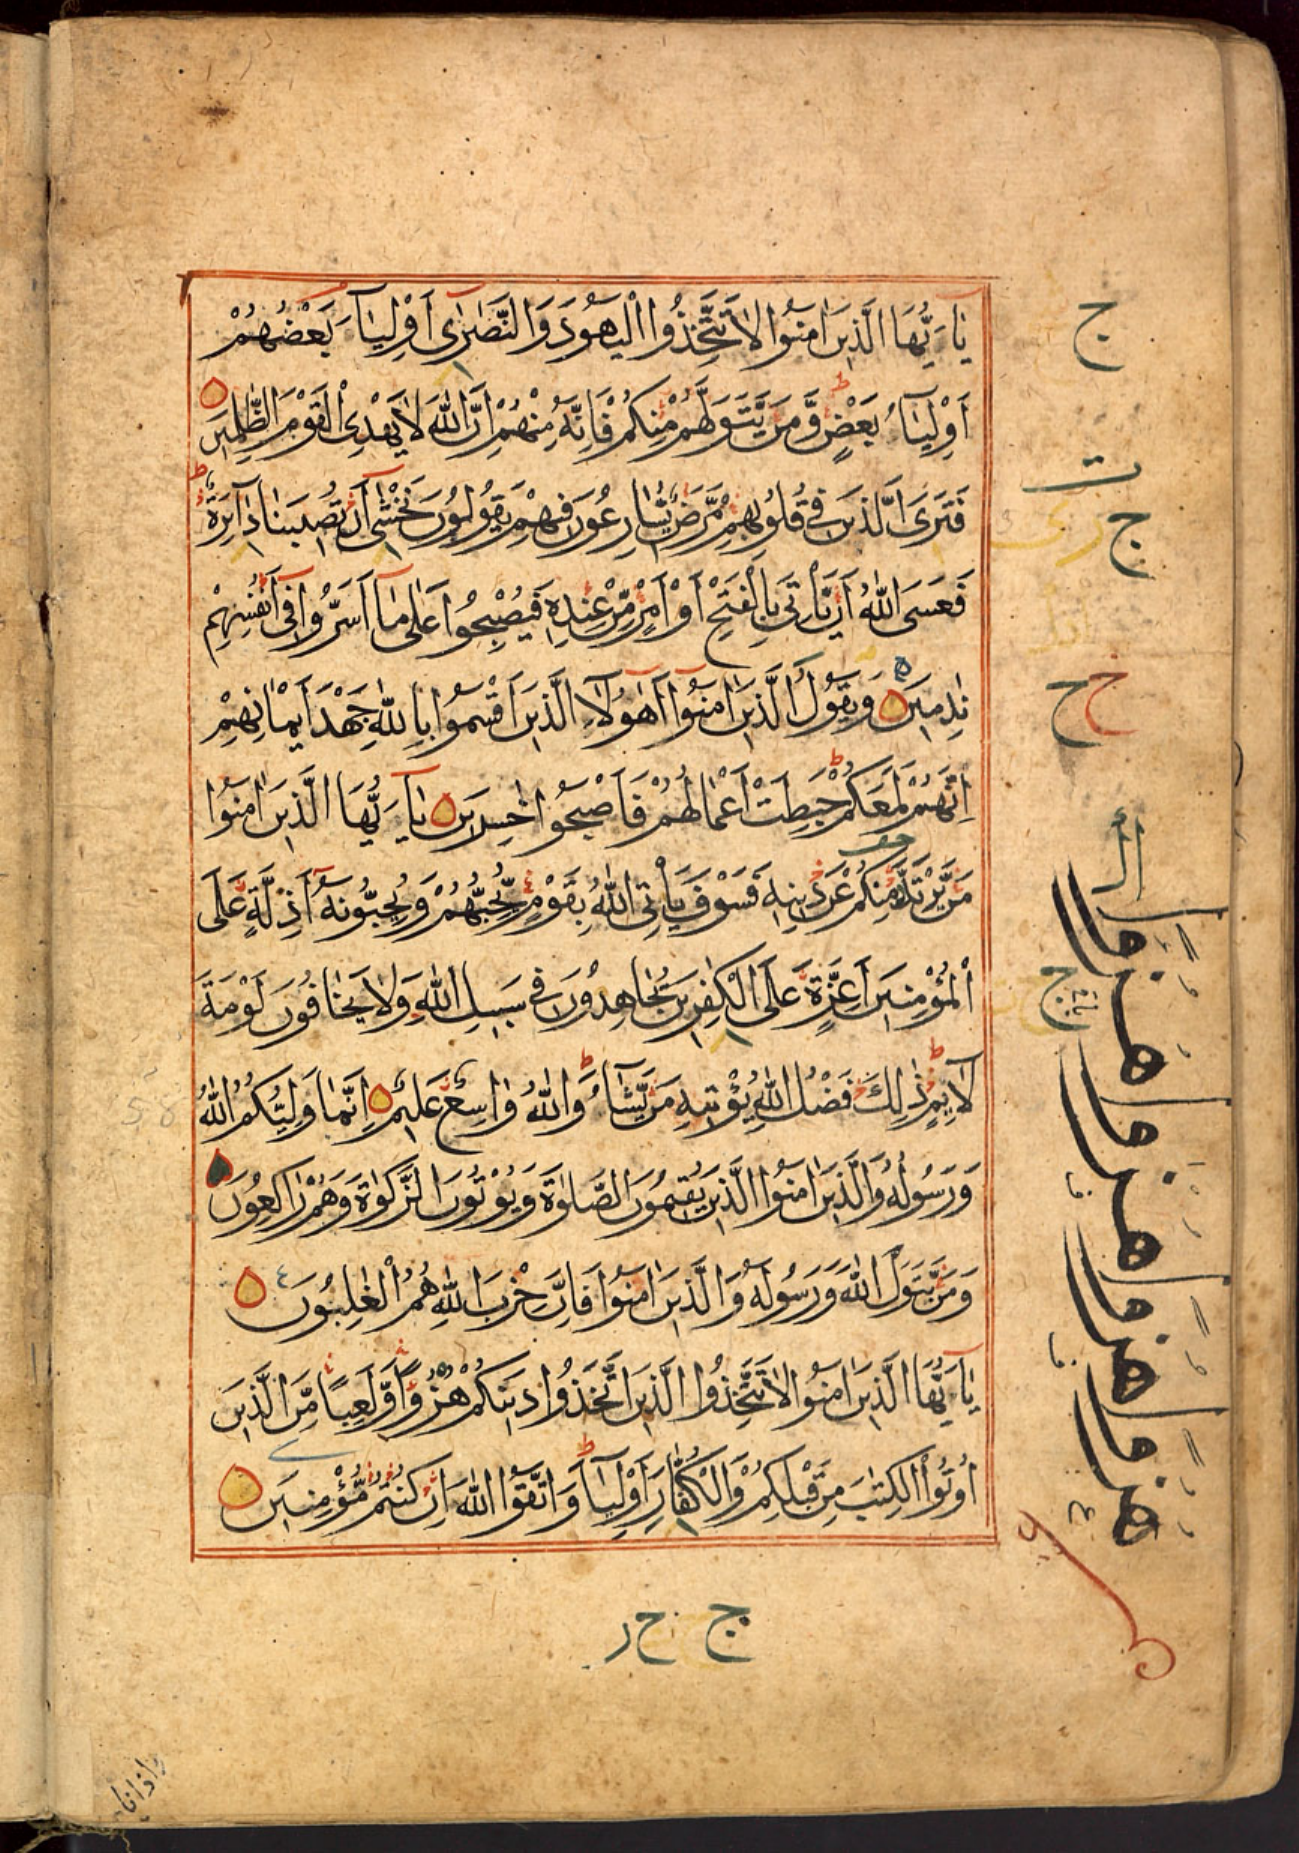 يٰاَيُّهَا الَّذِيْنَ اٰمَنُوْا لَا تَتَّخِذُوا الْيَهُوْدَ وَالنَّصٰرٰى اَوْلِيَآءَ بَعْضُهُمْ
اَوْلِيَآءُ بَعْضٍ وَّمَنْ يَّتَوَلَّهُمْ مِّنْكُمْ فَاِنَّهُ مِنْهُمْ اِنَّ اللّٰهَ لَا يَهْدِى الْقَوْمَ الظّٰلِمِيْنَ
فَتَرَى الَّذِيْنَ فِىْ قُلُوْبِهِمْ مَّرَضٌ يُّسَارِعُوْنَ فِيْهِمْ يَقُوْلُوْنَ نَخْشٰٓى اَنْ تُصِيْبَنَا دَآئِرَةٌ
فَعَسَى اللّٰهُ اَنْ يَّاْتِىَ بِالْفَتْحِ اَوْ اَمْرٍ مِّنْ عِنْدِهٖ فَيُصْبِحُوْا عَلٰى مَآ اَسَرُّوْا فِىْٓ اَنْفُسِهِمْ
نٰدِمِيْنَ وَيَقُوْلُ الَّذِيْنَ اٰمَنُوْٓا اَهٰٓؤُلَآءِ الَّذِيْنَ اَقْسَمُوْا بِاللّٰهِ جَهْدَ اَيْمَانِهِمْ
اِنَّهُمْ لَمَعَكُمْ حَبِطَتْ اَعْمَالُهُمْ فَاَصْبَحُوْا خٰسِرِيْنَ يٰاَيُّهَا الَّذِيْنَ اٰمَنُوْا
مَنْ يَّرْتَدَّ مِنْكُمْ عَنْ دِيْنِهٖ فَسَوْفَ يَاْتِى اللّٰهُ بِقَوْمٍ يُّحِبُّهُمْ وَيُحِبُّوْنَهٗٓ اَذِلَّةٍ عَلَى
الْمُؤْمِنِيْنَ اَعِزَّةٍ عَلَى الْكٰفِرِيْنَ يُجَاهِدُوْنَ فِىْ سَبِيْلِ اللّٰهِ وَلَا يَخَافُوْنَ لَوْمَةَ
لَآئِمٍ ذٰلِكَ فَضْلُ اللّٰهِ يُؤْتِيْهِ مَنْ يَّشَآءُ وَاللّٰهُ وَاسِعٌ عَلِيْمٌ اِنَّمَا وَلِيُّكُمُ اللّٰهُ
وَرَسُوْلُهٗ وَالَّذِيْنَ اٰمَنُوا الَّذِيْنَ يُقِيْمُوْنَ الصَّلٰوةَ وَيُؤْتُوْنَ الزَّكٰوةَ وَهُمْ رٰاكِعُوْنَ
وَمَنْ يَّتَوَلَّ اللّٰهَ وَرَسُوْلَهٗ وَالَّذِيْنَ اٰمَنُوْا فَاِنَّ حِزْبَ اللّٰهِ هُمُ الْغٰلِبُوْنَ
يٰاَيُّهَا الَّذِيْنَ اٰمَنُوْا لَا تَتَّخِذُوا الَّذِيْنَ اتَّخَذُوْا دِيْنَكُمْ هُزُوًا وَّلَعِبًا مِّنَ الَّذِيْنَ
اُوْتُوا الْكِتٰبَ مِنْ قَبْلِكُمْ وَالْكُفَّارَ اَوْلِيَآءَ وَاتَّقُوا اللّٰهَ اِنْ كُنْتُمْ مُّؤْمِنِيْنَ
ج
ج
ح ح
ج
هزوا هزوا هزوا هزوا
ج ح ر
واذا نا